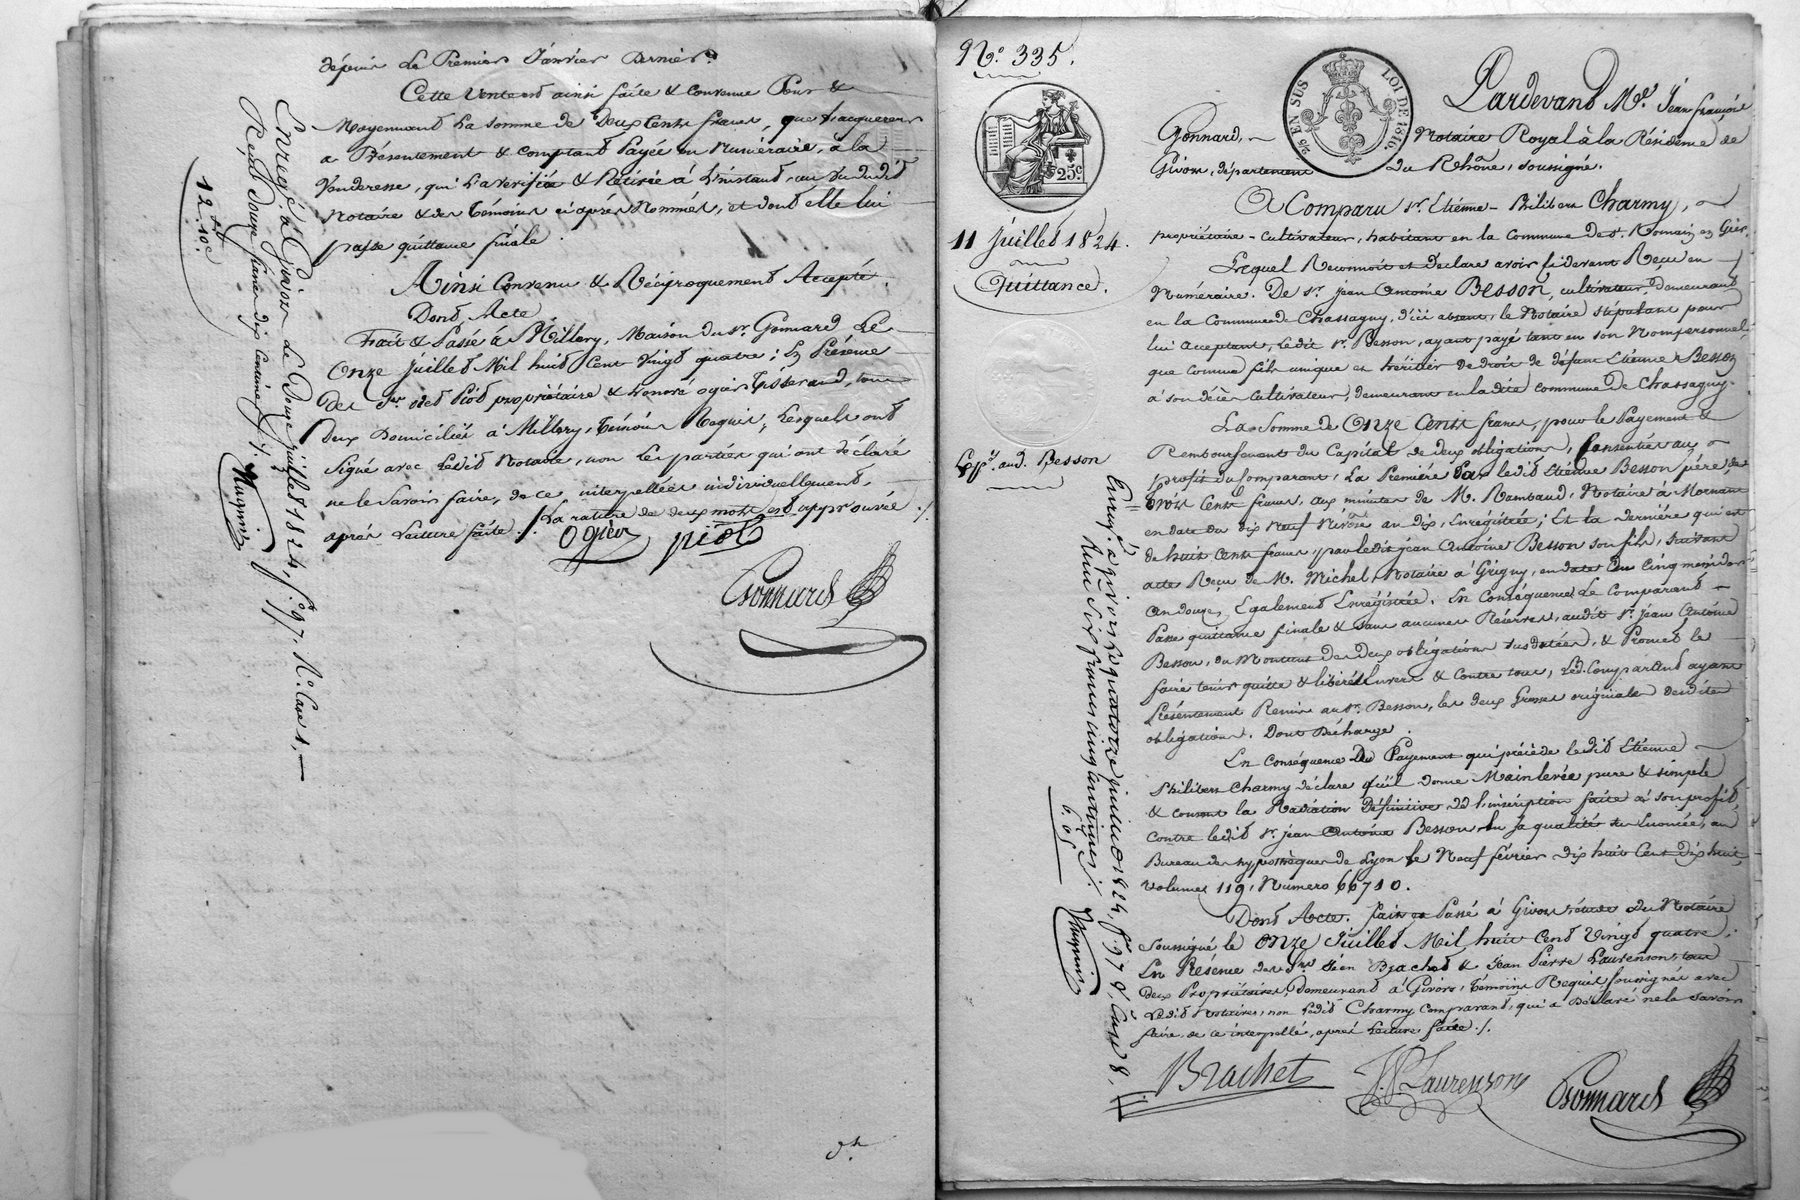 depuis le Premier Janvier Dernier.
Cette Vente est ainsi faite & Convenue Pour &
Moyennant La Somme de Deux Cents francs, que l'acquereur
a Présentement & comptant Payée en Numéraire, à la
Venderesse, qui L'a Verifiée & Retirée à L'instant, au Vu dudit
Notaire & des témoins ci après Nommés, et dont elle lui
passe quittance finale.
Ainsi Convenu & Réciproquement Accepté.
Dont Acte
Fait & Passé à Millery, Maison du Sr. Gonnard Le
Onze Juillet Mil huit Cent Vingt quatre; En Présence
Des Srs. Piot propriétaire & honoré ogier Tisserand, tous
Deux Domiciliés à Millery, Témoins Requis, Lesquels ont
Signé avec Ledit Notaire, non les parties qui ont déclaré
ne le Savoir faire, de ce interpellées individuellement,
après Lecture faite ./. La rature de deux mots est approuvée ./.
Ogier piot
Gonnard
Enregé. à Givors Le Douze juillet 1824, fo. 97. Ro. Case 1,
Reçu Douze francs dix Centimes ./.
12. 10c
N.o 335.
25 EN SUS LOI DE 1816
25c.
11 Juillet 1824.
Quittance.
Exp. aud. Besson
Pardevant Me. Jean françois
Gonnard, Notaire Royal à la Résidence de
Givors, département du Rhône, soussigné.
A Comparu Sr. Etienne-Philibert Charmy,
propriétaire-cultivateur, habitant en la Commune de St. Romain en Gier.
Lequel Reconnoit et declare avoir ci devant Reçu en
Numéraire. De Sr. Jean Antoine Besson, cultivateur, demeurant
en la Commune de Chassagny, d'ici absent, le Notaire stipulant pour
lui acceptant, Ledit Sr. Besson, ayant payé tant en son Nom personnel
que comme fils unique et héritier de droit de défunt Etienne Besson
à son décès Cultivateur, demeurant en la dite commune de Chassagny.
La Somme de Onze Cents francs, pour le Payement &
Remboursement du Capital de deux obligations, Consenties au
profit du Comparant, La Première Par ledit Etienne Besson père, de
trois Cents francs, aux minutes de M. Rambaud, Notaire à Mornant
en date du dix Neuf Nivôse an dix, Enregistrée; Et la dernière qui est
de huit Cents francs, par ledit jean Antoine Besson son fils, suivant
acte Reçu de M. Michel, Notaire à Grigny, en date du Cinq messidor
an douze, Egalement Enregistrée. En Conséquence, Le Comparant
Passe quittance finale & sans aucunes Réserves, audit Sr. jean Antoine
Besson, du Montant des Deux obligations susdatées, & Promet le
faire tenir quitte & libéré Envers & Contre tous, Led. Comparant ayant
Présentement Remis au Sr. Besson, les deux Grosses originales desdites
obligations. Dont Décharge.
En Conséquence Du Payement qui précède ledit Etienne
Philibert Charmy déclare qu'il donne Mainlevée pure & simple
& consent la Radiation Définitive de l'inscription faite à son profit
Contre ledit Sr. jean Antoine Besson, En sa qualité sus Enoncée, au
Bureau des hypothèques de Lyon le Neuf février dix huit Cent dix huit
Volume 119, Numero 66710.
Dont Acte. fait & Passé à Givors étude du Notaire
Soussigné le Onze Juillet Mil huit Cent Vingt quatre;
En Présence des Srs. Jean Brachet & Jean Pierre Laurenson, tous
deux Propriétaires, Demeurant à Givors, témoins Requis soussignés avec
Ledit Notaire, non Ledit Charmy Comparant, qui a Déclaré ne le Savoir
faire, de ce interpellé, après Lecture faite ./.
Brachet J. P. Laurenson Gonnard
Enregé. à givors le quatorze juillet 1824, fo. 97 Vo, Case 8,
Reçu Six francs cinq centimes ./.
6. 05